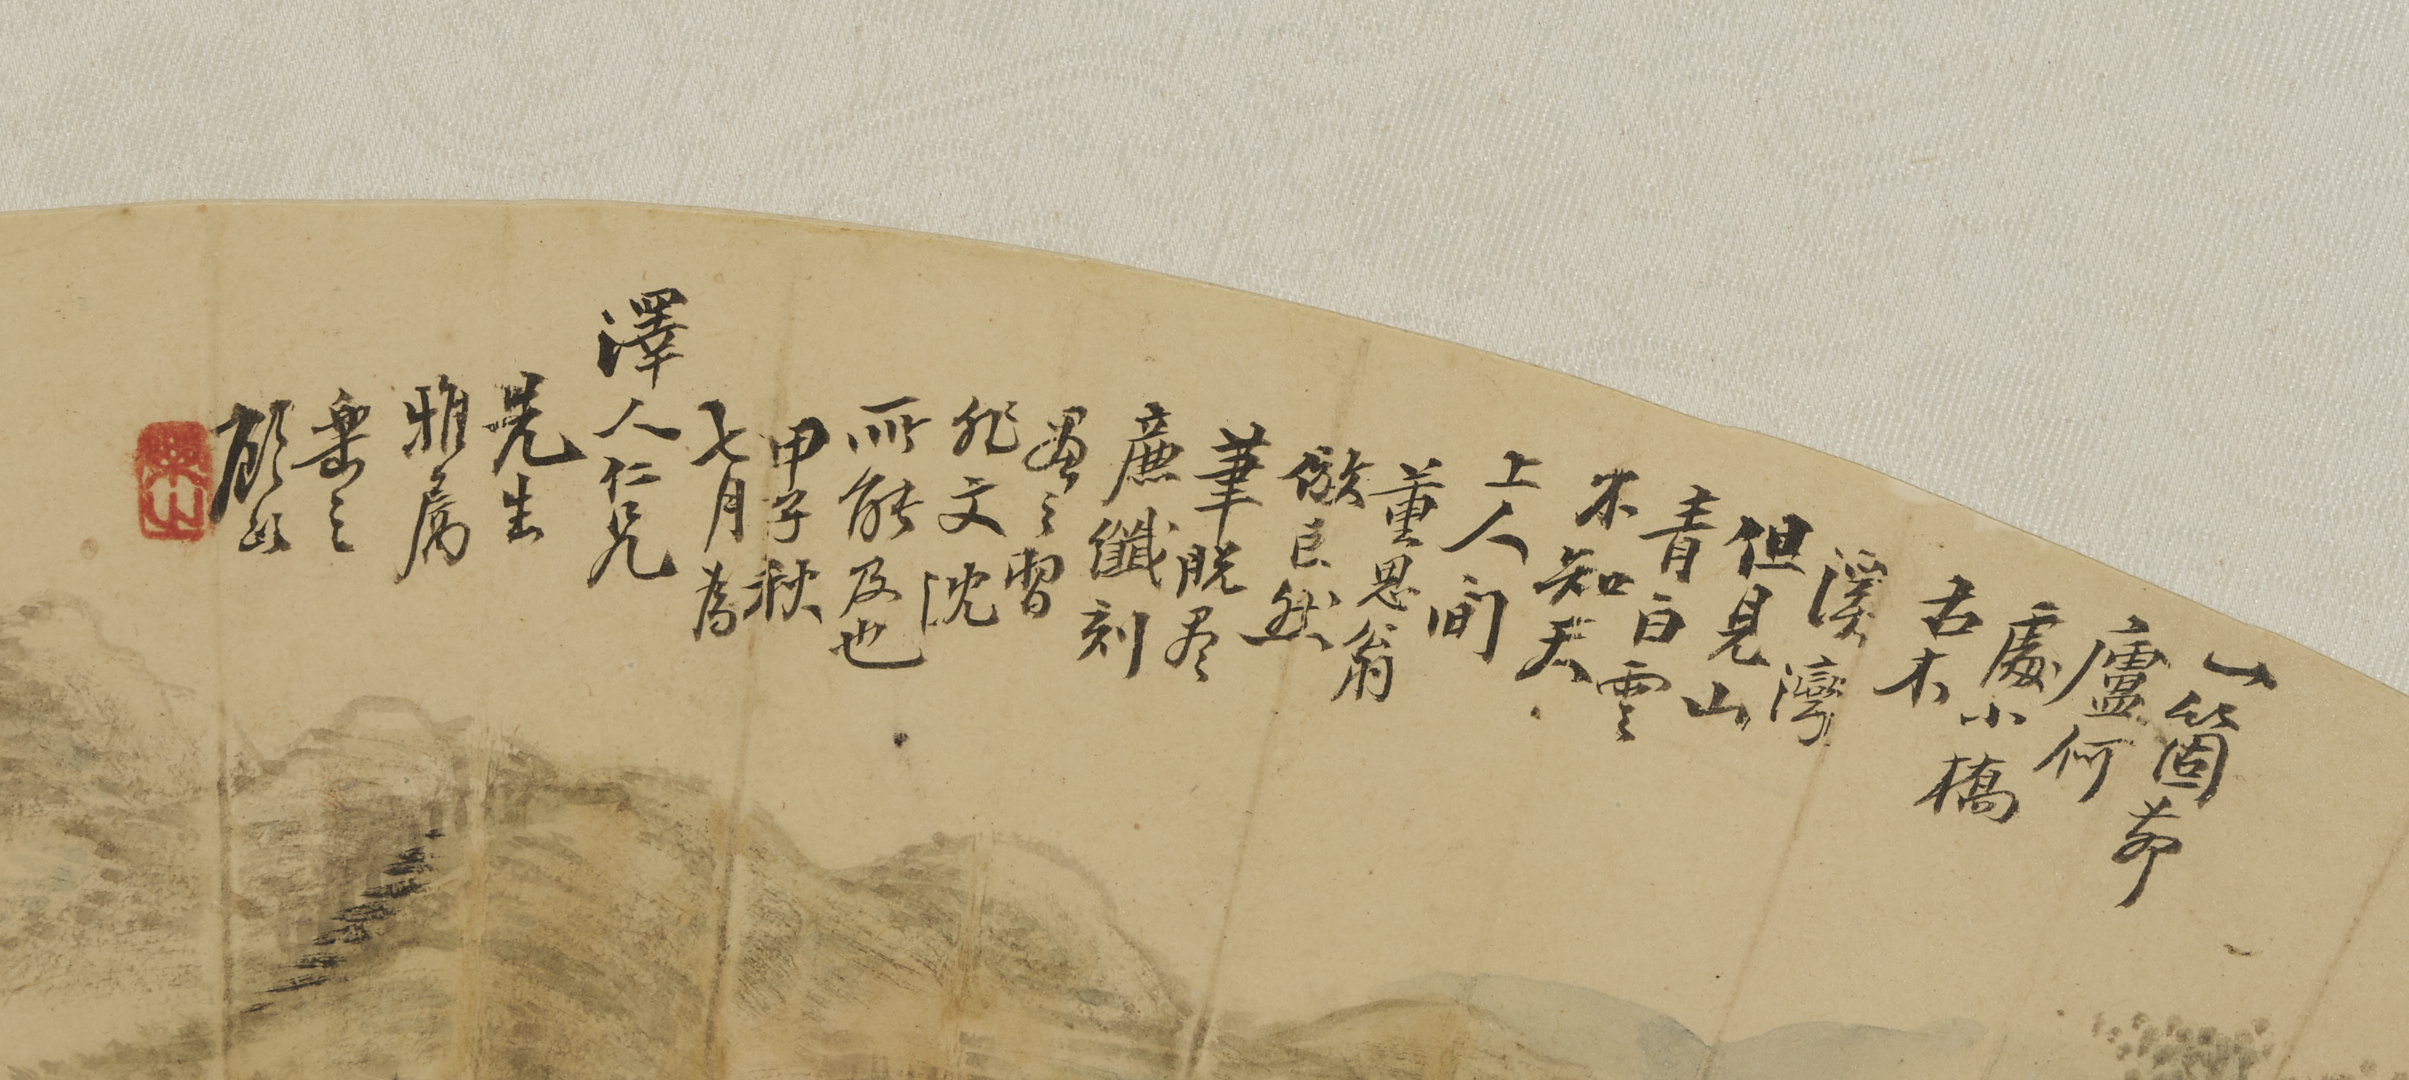 一箇茅
廬何
處小橋
古木
溪灣
但見山
青白雲
不知天
上人間
董思翁
倣巨然
筆脱尽
廉纖刻
畫之習
非文沈
所能及也
甲子秋
七月為
澤人仁兄
先生
雅属
樂之
顧